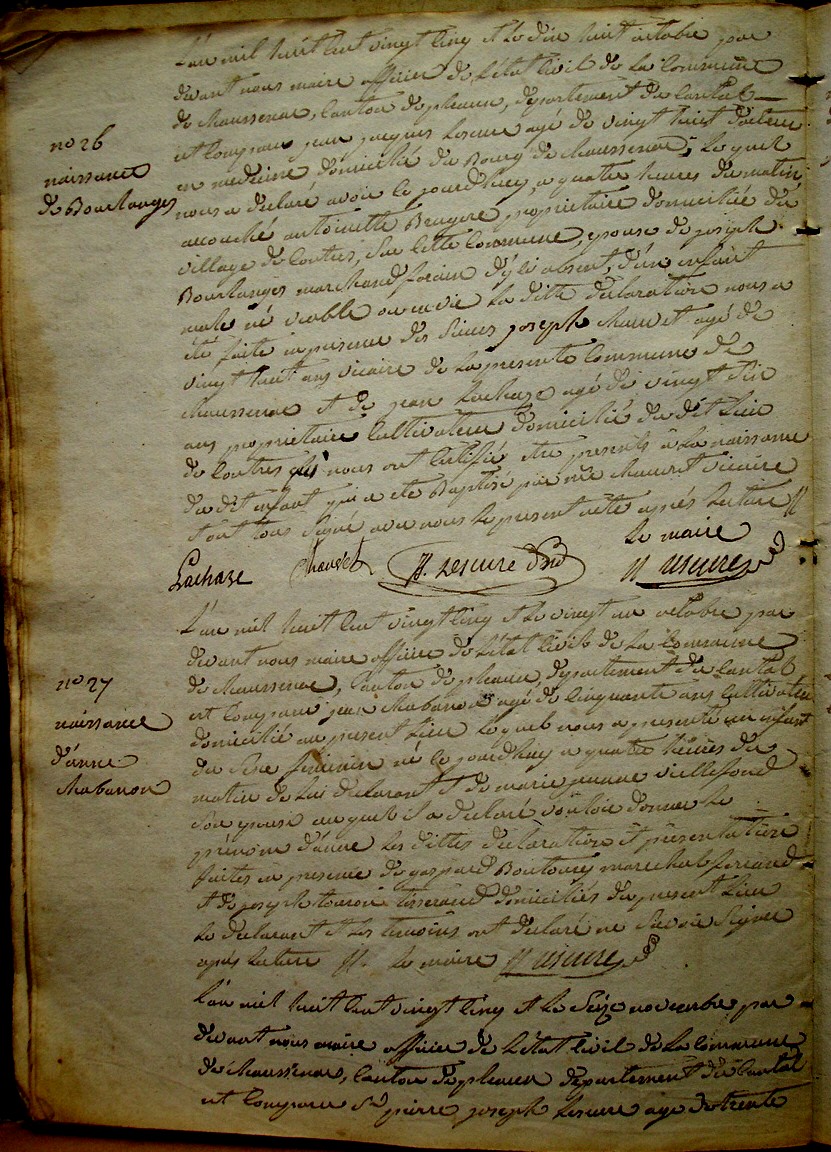 L'an mil huit cent vingt cinq et le dix huit octobre par
devant nous maire officier de l'état civil de la commune
de Chaussenac, canton de pleaux, département du Cantal
est comparu jean jacques Lescure agé de vingt huit docteur
no 26
naissance
de Bourlanges
en medecine domicilié du Bourg de Chaussenac, lequel
nous a declaré avoir ce jourd'huy a quatre heures du matin
accouché antoinette Brugere propriétaire domiciliée du
village de Contres, sur cette commune, epouse de joseph
Bourlanges marchand forain d'ici absent, d'un enfant
male né viable ou en vie la ditte déclaration nous a
été faite en presence des sieurs joseph Chauvet agé de
vingt huit ans vicaire de la presente commune de
chaussenac et de jean Lachaze agé de vingt six
ans propriétaire cultivateur domicilié du dit lieu
de Contres qui nous ont certifié etre presents a la naissance
du dit enfant qui a été Baptisé par mr Chauvet vicaire
et ont tous signé avec nous le present acte après lecture //
Le maire
Lachaze Chauvet JJ. Lescure JJ Lescure
L'an mil huit cent vingt cinq et le vingt un octobre par
devant nous maire officier de l'état civil de la commune
no 27
naissance
d'anne
Chabanon
de Chaussenac, canton de pleaux, département du Cantal
est comparu jean Chabanon agé de cinquante ans cultivateur
domicilié au present lieu lequel nous a presenté un enfant
du sexe feminin né ce jourd'huy a quatre heures du
matin de lui declarant et de marie jeanne vieillefond
son epouse auquel il a declaré vouloir donner le
prénom d'anne les dittes déclaration et présentation
faites en presence de gaspard Boutoure marechal ferrand
et de joseph tisserand domiciliés du present lieu
le declarant et les temoins ont declaré ne savoir signer
après lecture //. Le maire JJ Lescure
L'an mil huit cent vingt cinq et le seize novembre par
devant nous maire officier de l'état civil de la commune
de chaussenac, canton de pleaux département du Cantal
est comparu Sr pierre joseph Lescure agé de trente